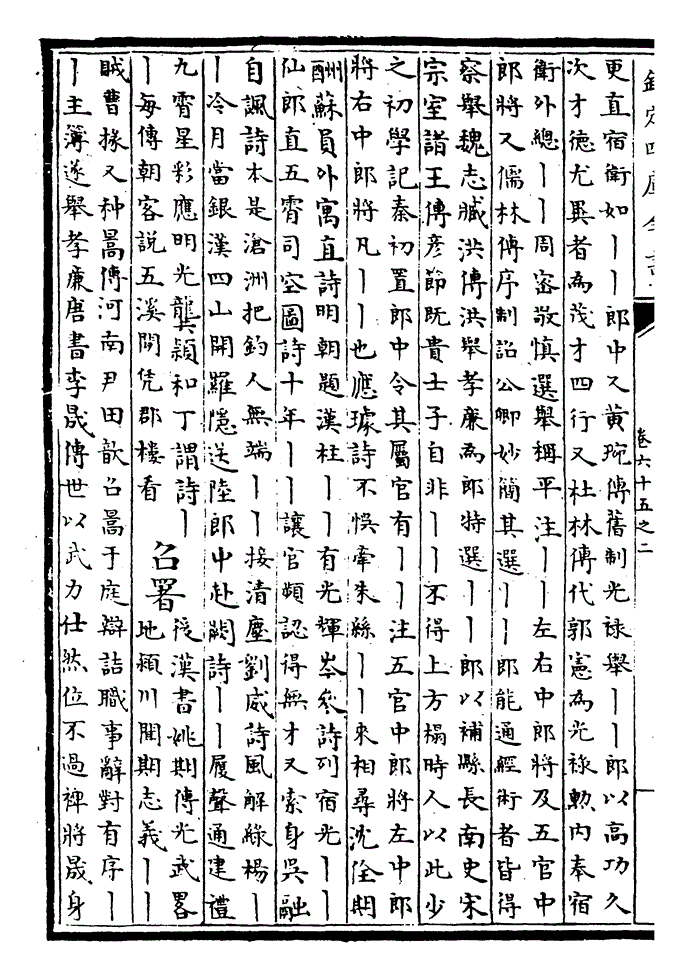 欽定四庫全書
卷六十五之二
更直宿衛如丨丨郎中又黃琬傳舊制光祿舉丨丨郎以高功久
次才德尤異者為茂才四行又杜林傳代郭憲為光祿勲内奉宿
衛外總丨丨周密敬慎選舉稱平注丨丨左右中郎將及五官中
郎將又儒林傳序制詔公卿妙簡其選丨丨郎能通經術者皆得
察舉魏志臧洪傳洪舉孝廉為郎特選丨丨郎以補縣長南史宋
宗室諸王傳彦節既貴士子自非丨丨不得上方榻時人以此少
之初學記秦初置郎中令其屬官有丨丨注五官中郎將左中郎
將右中郎將凡丨丨也應璩詩不悞牽朱絲丨丨來相尋沈佺期
酬蘇員外寓直詩明朝題漢柱丨丨有光輝岑參詩列宿光丨丨
仙郎直五霄司空圖詩十年丨丨讓官頻認得無才又索身吳融
自諷詩本是滄洲把釣人無端丨丨接清塵劉威詩風解綠楊丨
丨冷月當銀漢四山開羅隱送陸郎中赴闕詩丨丨履聲通建禮
九霄星彩應明光龔穎和丁謂詩丨
丨每傳朝客説五溪閒凭郡樓看
召署
後漢書姚期傳光武畧
地潁川聞期志義丨丨
賊曹掾又种暠傳河南尹田歆召暠于庭辯詰職事辭對有序丨
丨主簿遂舉孝廉唐書李晟傳世以武力仕然位不過裨將晟身